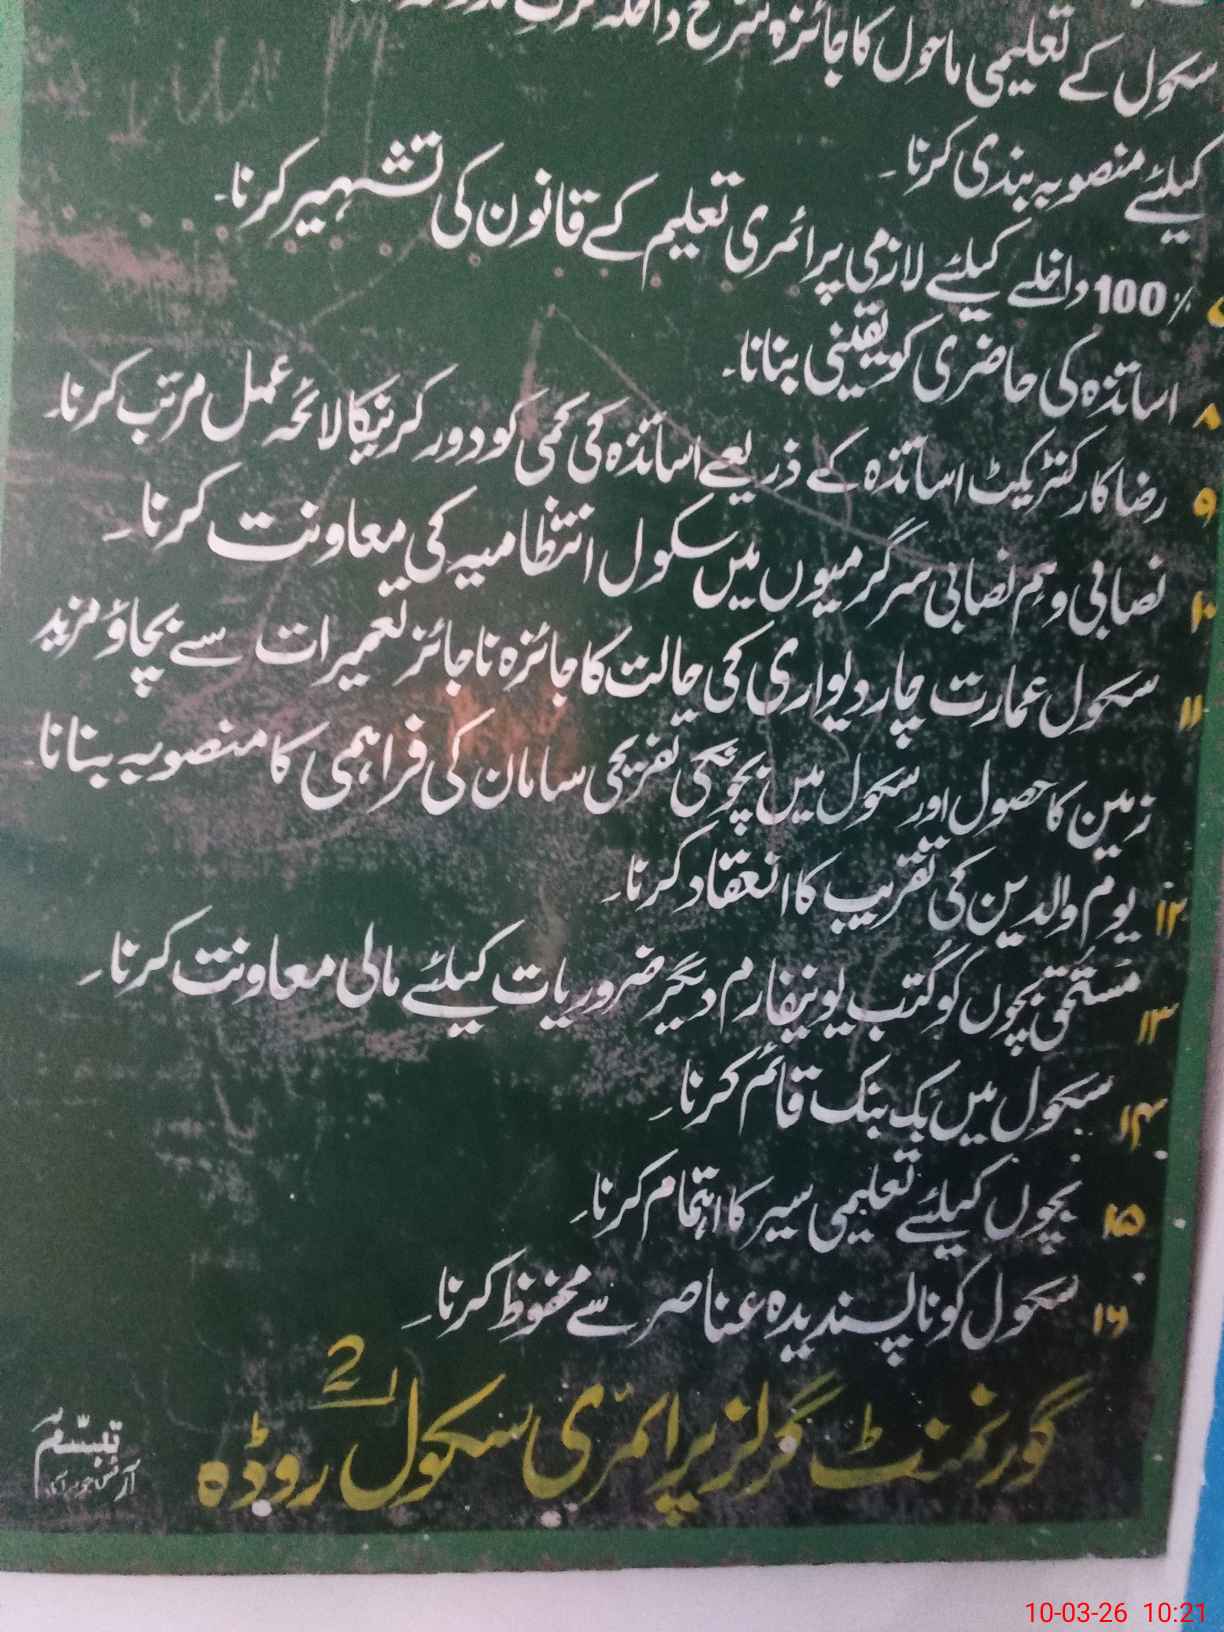 سکول کے تعلیمی ماحول کا جائزہ شرح داخلہ
کیلئے منصوبہ بندی کرنا۔
100٪ داخلے کیلئے لازمی پرائمری تعلیم کے قانون کی تشہیر کرنا۔
۸ اساتذہ کی حاضری کو یقینی بنانا۔
۹ رضا کار کنٹریکٹ اساتذہ کے ذریعے اساتذہ کی کمی کو دور کرنیکا لائحہ عمل مرتب کرنا۔
۱۰ نصابی و ہم نصابی سرگرمیوں میں سکول انتظامیہ کی معاونت کرنا۔
۱۱ سکول عمارت چار دیواری کی حالت کا جائزہ ناجائز تعمیرات سے بچاؤ مزید
زمین کا حصول اور سکول میں بچونکی تفریحی سامان کی فراہمی کا منصوبہ بنانا
۱۲ یوم والدین کی تقریب کا انعقاد کرنا۔
۱۳ مستحق بچوں کو کُتب یونیفارم دیگر ضروریات کیلئے مالی معاونت کرنا۔
۱۴ سکول میں بک بنک قائم کرنا۔
۱۵ بچوں کیلئے تعلیمی سیر کا اہتمام کرنا۔
۱۶ سکول کو ناپسندیدہ عناصر سے محفوظ کرنا۔
گورنمنٹ گرلز پرائمری سکول 2 روڈہ
تبسم
آرٹس جوہرآباد
10-03-26 10:21